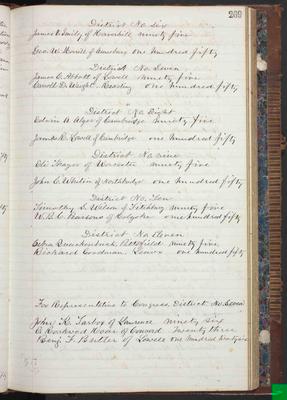 269
District No Six
James Bailey of Haverhill ninety five
Geo. W. Morrill of Amesbury one hundred fifty
District No Seven
James C. Abbott of Lowell Ninety five
Carroll D. Wright Reading one hundred fifty
District No Eight
Edwin A Alger of Cambridge Ninety five
James R. Lowell of Cambridge one hundred fifty
District No nine
Eli Thayer of Worcester ninety five
John C. Whitin of Northbridge one hundred fifty
District No. Ten
Timothy S. Wilson of Fitchburg ninety five
W. B. C. Pearsons of Holyoke one hundred fifty
District No Eleven
Pittsfield ninety five
Richard Goodman Lenox one hundred fifty
For Representative to Congress District No Seven
John K. Tarbox of Lawrence ninety six
E Rockwood Hoar of Concord twenty three
Benj. F Butler of Lowell one hundred